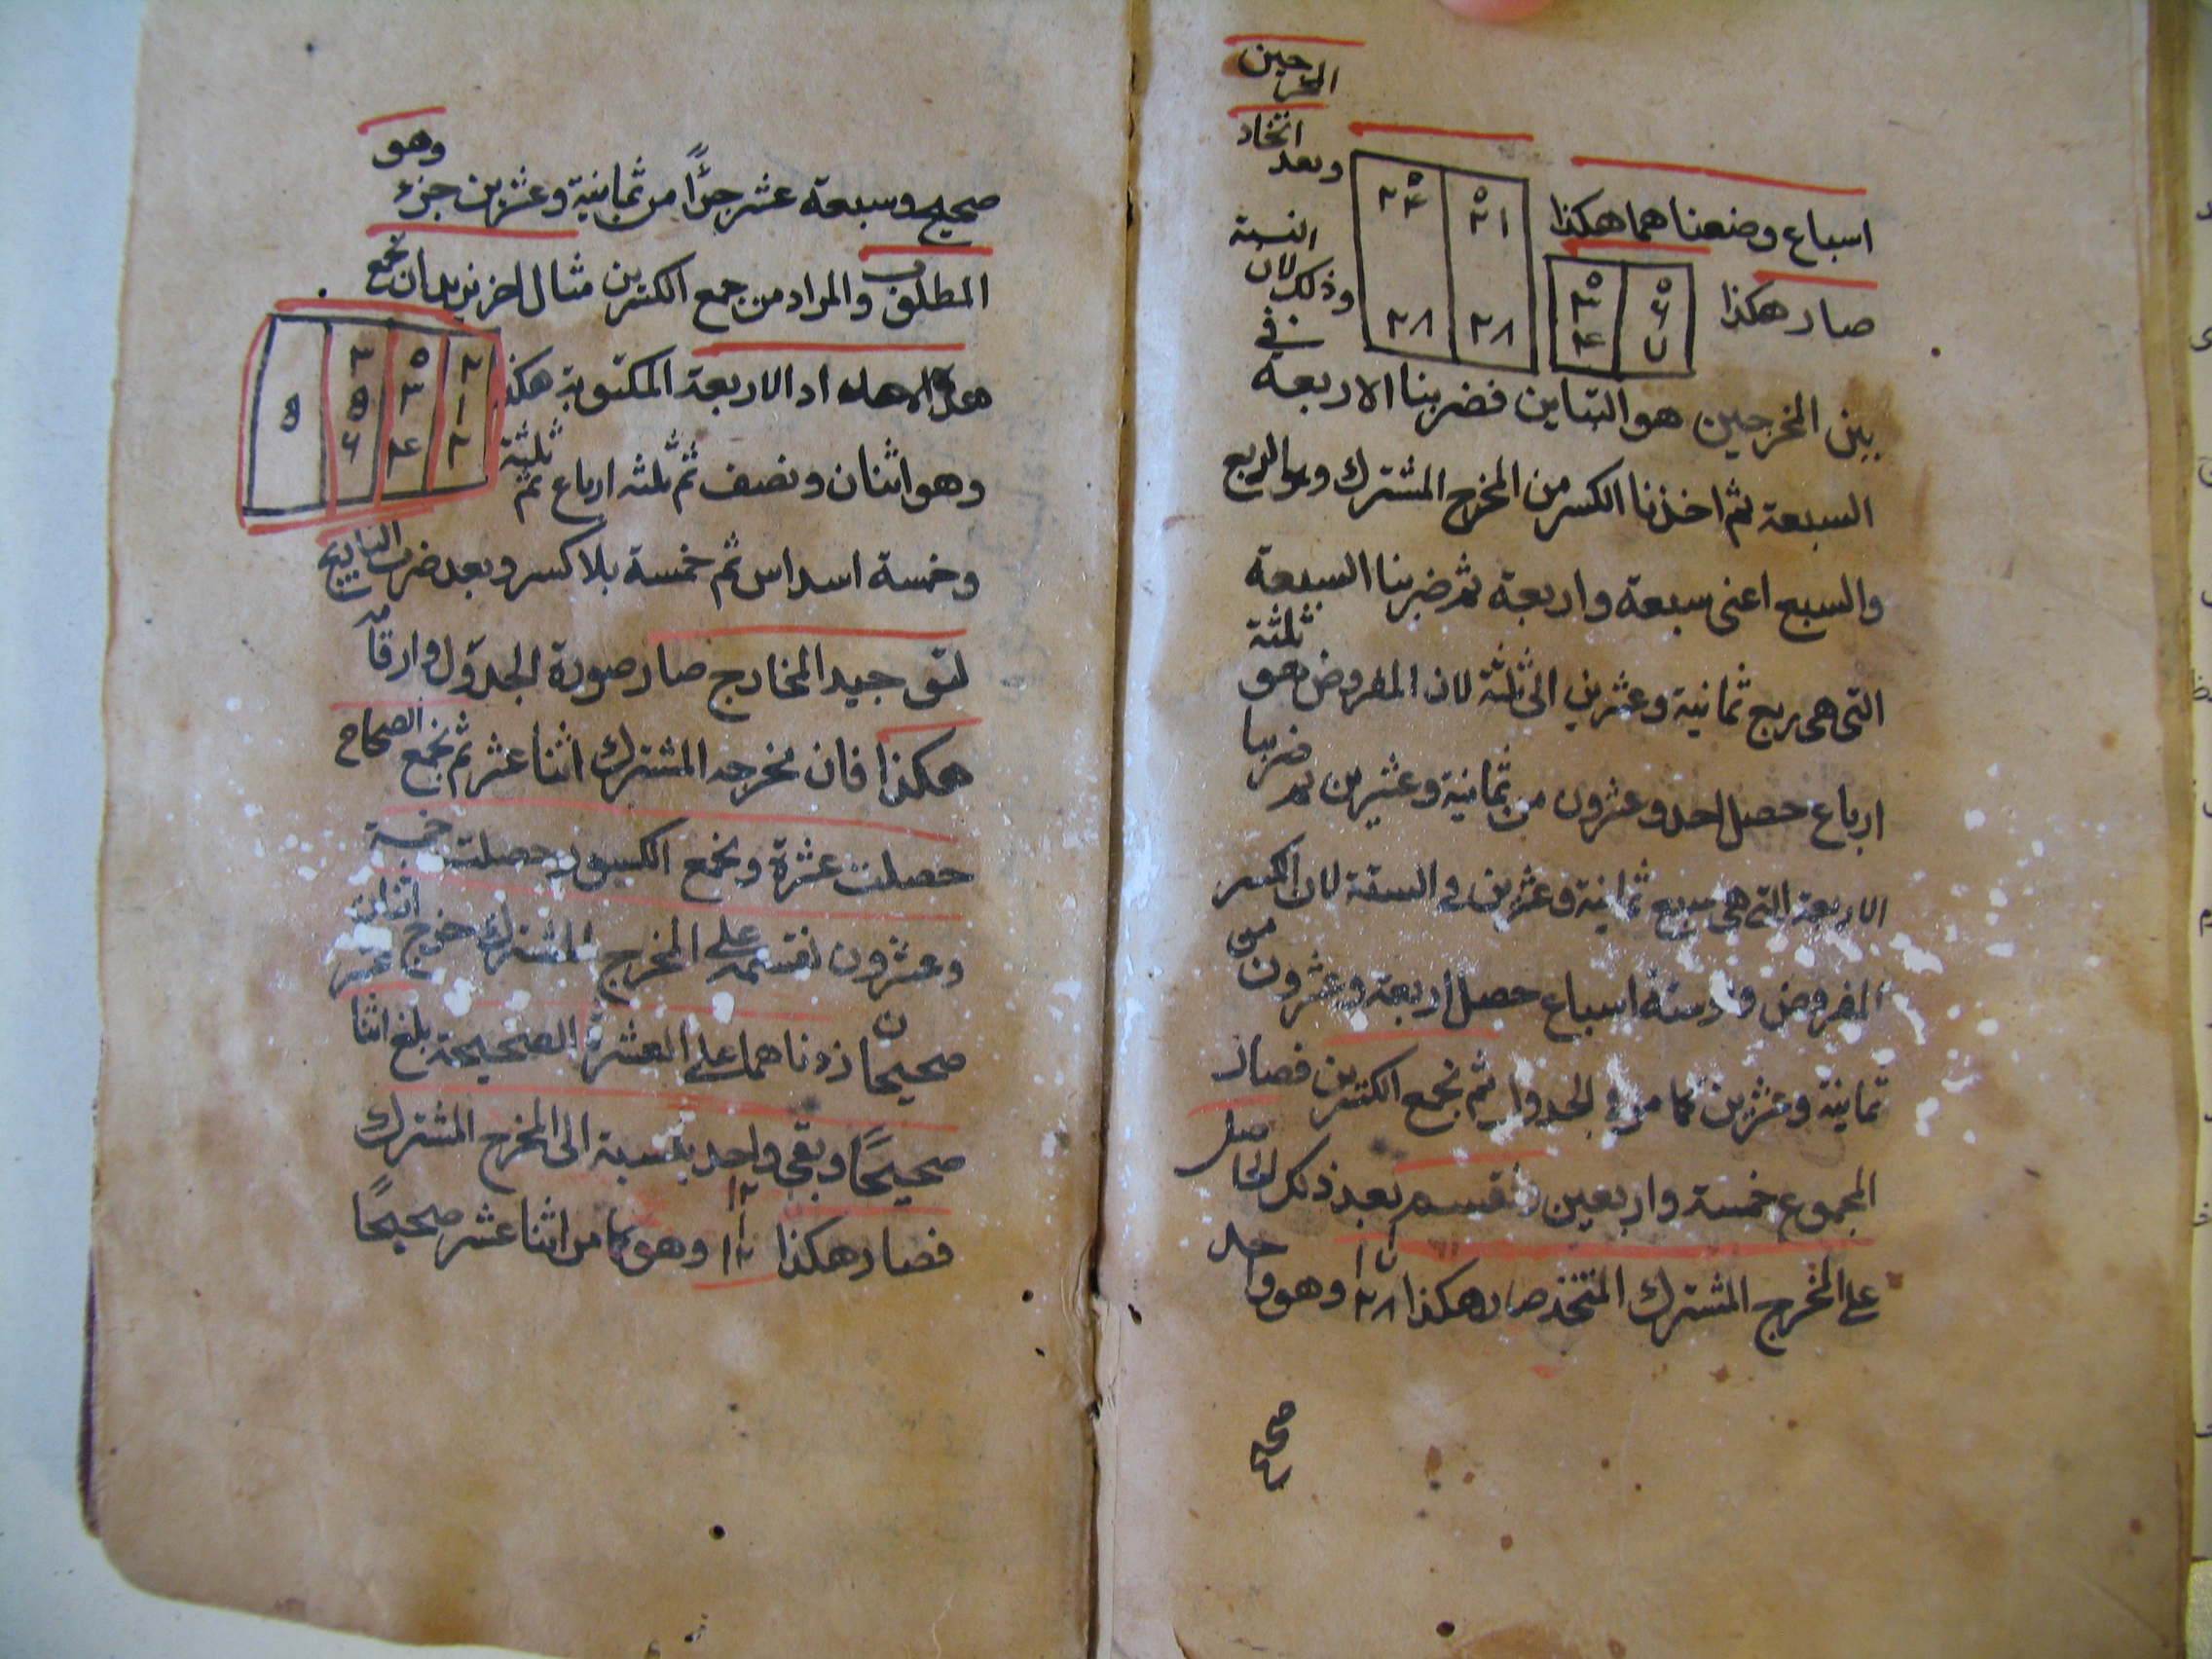 اسباع وضعناهما هكذا
صار هكذا
٥ ٥
٦ ٣
٧ ۴
٥ ٥
٢١ ٢۴
٢٨ ٢٨
وبعد
اتحاد
المخرجين
وذلك لان
النسبة
في
بين المخرجين هو التباين فضربنا الاربعة
السبعة ثم اخذنا الكسر من المخرج المشترك وهو الربع
والسبع اعنى سبعة واربعة ثم ضربنا السبعة
التى هى ربع ثمانية وعشرين الى ثلثة لان المفروض هو ثلثة
ارباع حصل احد وعشرون من ثمانية وعشرين ثم ضربنا
الاربعة التى هى سبع ثمانية وعشرين في الستة لان الكسر
المفروض ستة اسباع حصل اربعة وعشرون من
ثمانية وعشرين كما مر في الجدول ثم نجمع الكسرين فصار
المجموع خمسة واربعين نقسم بعد ذلك الحاصل
على المخرج المشترك المتخذ صار هكذا ١ ١٧ ٢٨ وهو واحد
صحيح
صحيح وسبعة عشر جزًا من ثمانية وعشرين جزء وهو
المطلوب والمراد من جمع الكسرين مثال اخر نريد ان نجمع
الاربعة المكتوبة هكذا
٢ ٥ ٣ ٥
١ ٣ ٥
٢ ۴ ٦
وهو اثنان ونصف ثم ثلثه ارباع ثم ثلثة
وخمسة اسداس ثم خمسة بلا كسر وبعد ضرب
المخارج صار صورة الجدول وارقامه
هكذا فان مخرجه المشترك اثنا عشر ثم نجمع الصحاح
حصلت عشرة ونجمع الكسور حصلت خمسة
وعشرون نقسمه على المخرج المشترك خرج اثنان
صحيحان زدناهما على العشرة الصحيحة بلغ اثنا عشر
صحيحًا وبقى واحد بنسبة الى المخرج المشترك
فصار هكذا ١٢ ١ ١٢ وهو كما مر اثنا عشر صحيحًا